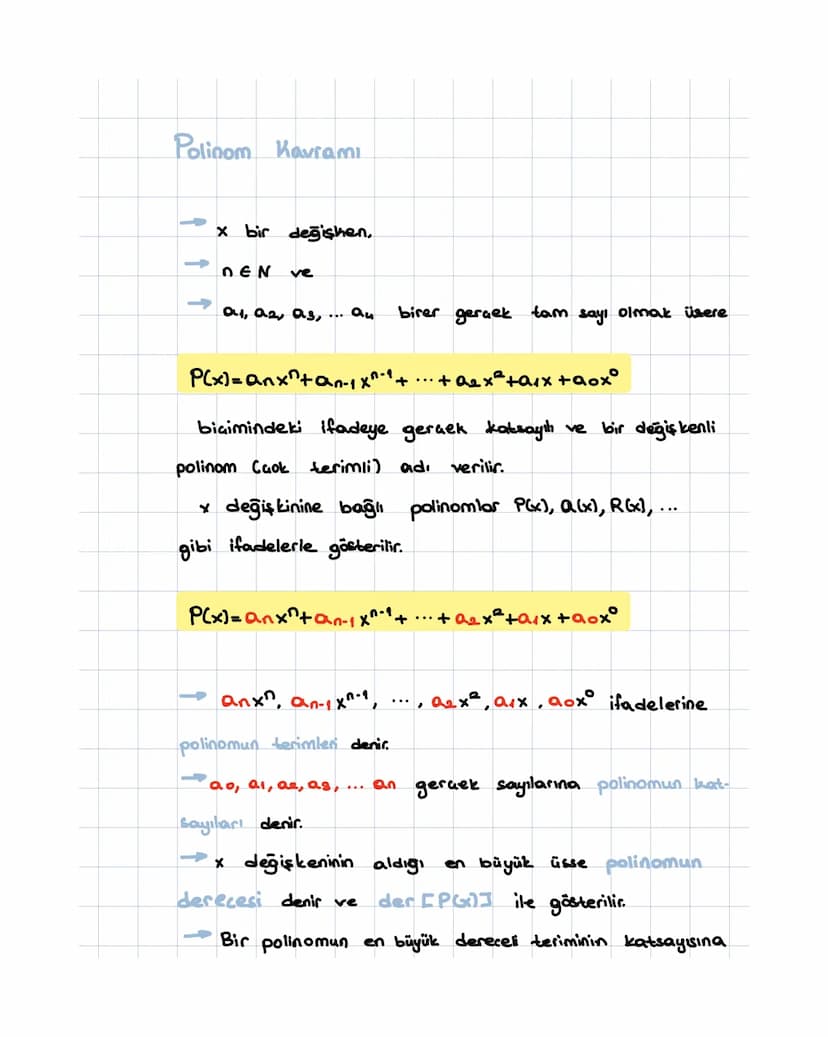 Polinom Kavramı
→ x bir değişken,
→ n ∈ N ve
→ a₁, a₂, a₃, ... a₄ birer gerçek tam sayı olmak üzere
P(x)=aₙxⁿ+aₙ₋₁xⁿ⁻¹+ ... + a₂x²+a₁x+a₀x⁰
biçimindeki ifadeye gerçek katsayılı ve bir değişkenli
polinom (çok terimli) adı verilir.
x değişkinine bağlı polinomlar P(x), Q(x), R(x), ...
gibi ifadelerle gösterilir.
P(x)=aₙxⁿ+aₙ₋₁xⁿ⁻¹+ ... + a₂x²+a₁x+a₀x⁰
→ aₙxⁿ, aₙ₋₁xⁿ⁻¹, ..., a₂x², a₁x, a₀x⁰ ifadelerine
polinomun terimleri denir.
→ a₀, a₁, a₂, a₃, ... aₙ gerçek sayılarına polinomun kat-
sayıları denir.
→ x değişkeninin aldığı en büyük üsse polinomun
derecesi denir ve der [P(x)] ile gösterilir.
→ Bir polinomun en büyük dereceli teriminin katsayısına